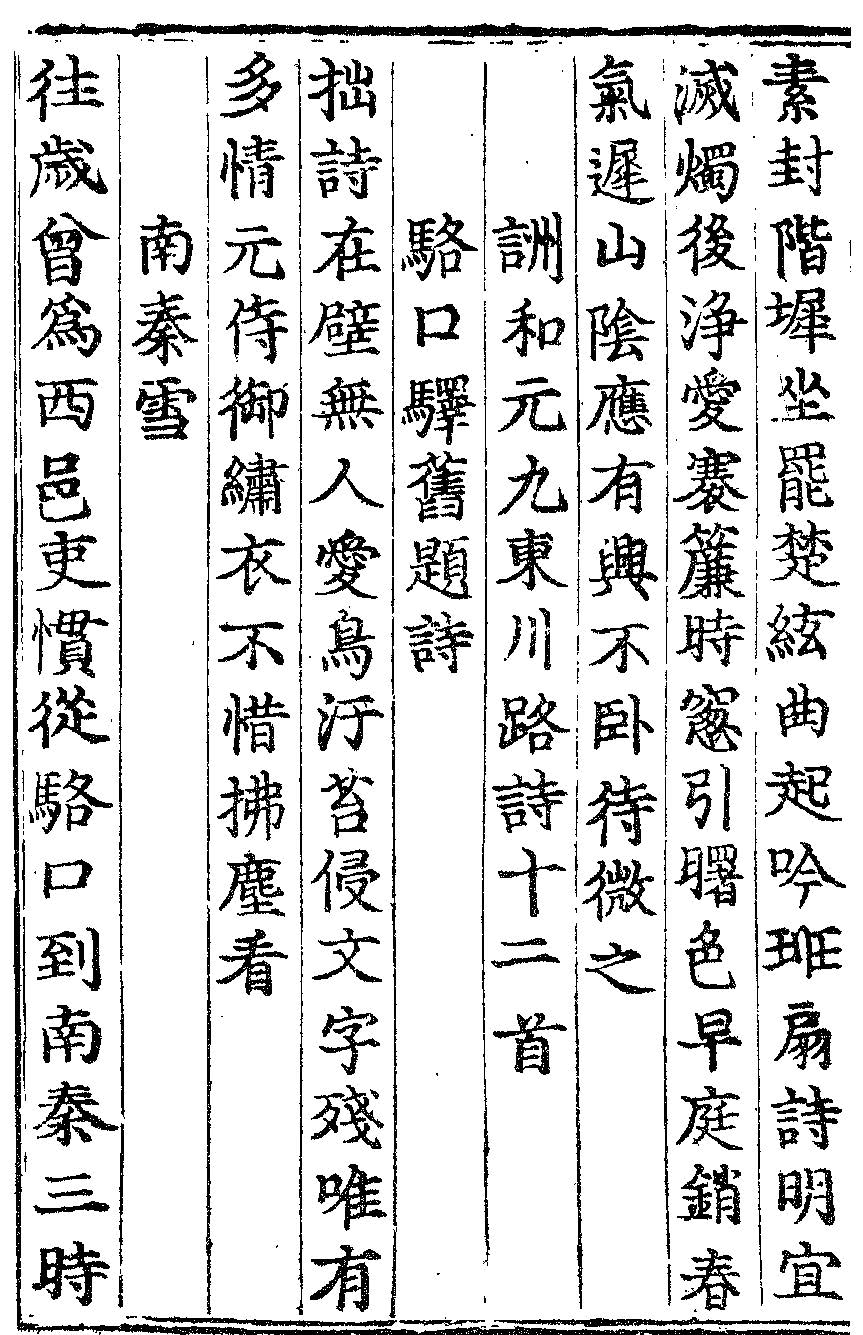 素封階墀坐罷楚絃曲起吟班扇詩明宜
滅燭後淨愛褰簾時窓引曙色早庭銷春
氣遲山陰應有興不卧待微之
詶和元九東川路詩十二首
駱口驛舊題詩
拙詩在壁無人愛鳥汙苔侵文字殘唯有
多情元侍御繡衣不惜拂塵看
南秦雪
往歲曾爲西邑吏慣從駱口到南秦三時